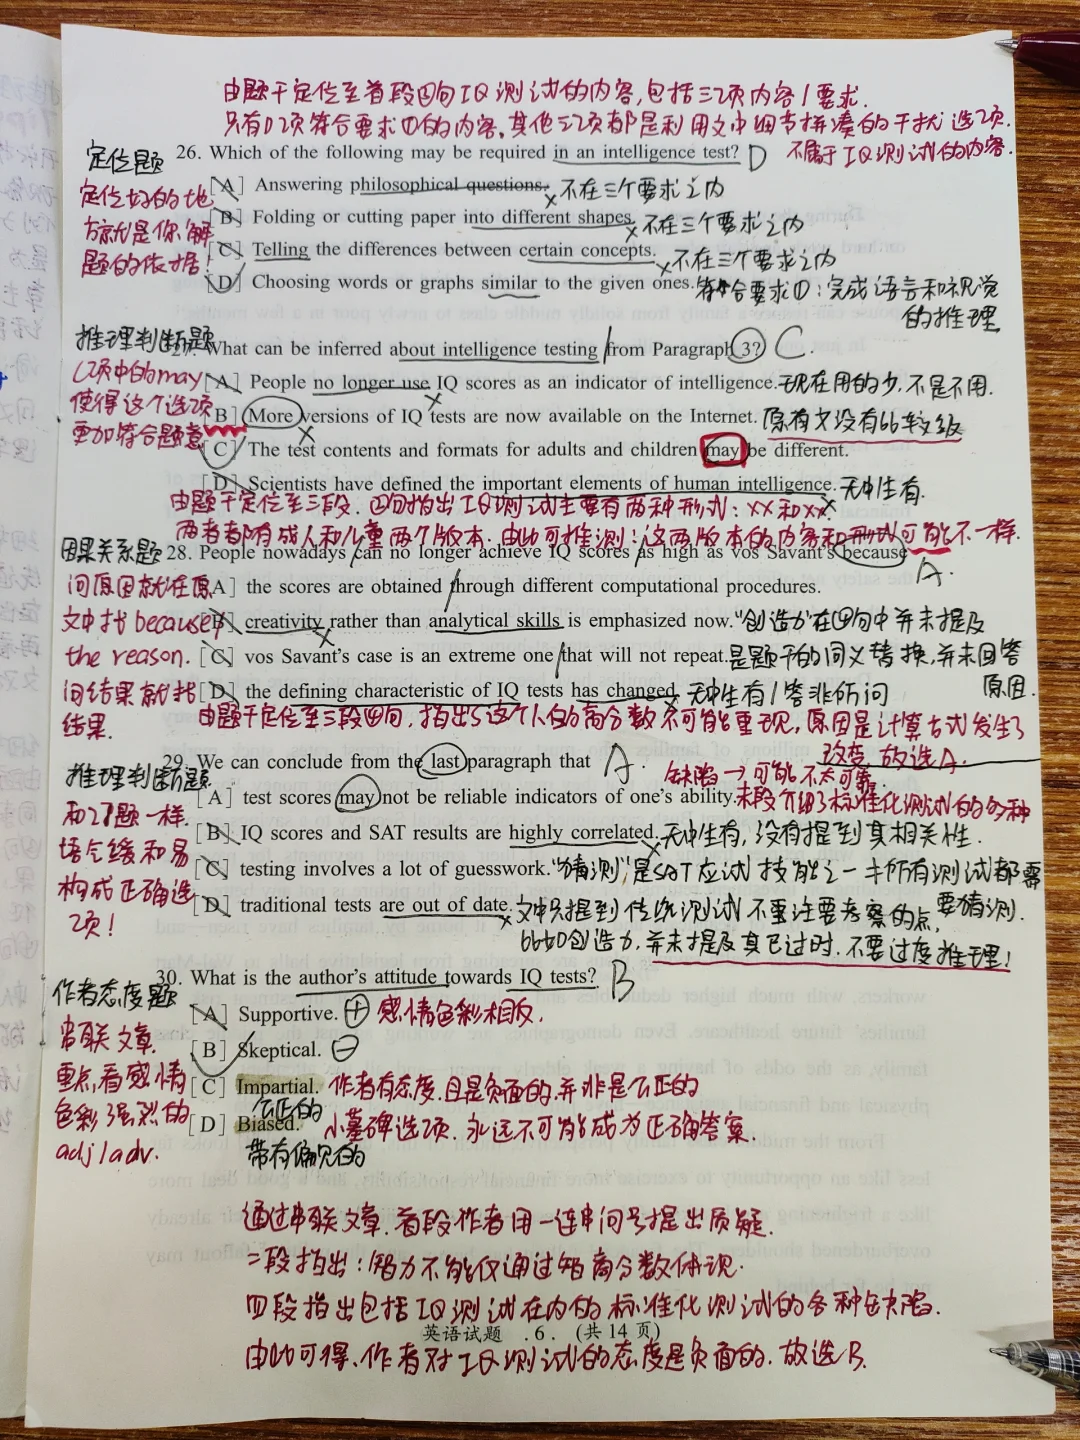 由题干定位至首段四句IQ测试的内容,包括三项内容/要求.
只有D项符合要求①的内容,其他三项都是利用文中细节拼凑的干扰选项.
不属于IQ测试的内容.
定位题
26. Which of the following may be required in an intelligence test? D
定位好的地
方就是你解
题的依据!
[A] Answering philosophical questions. 不在三个要求之内
[B] Folding or cutting paper into different shapes. 不在三个要求之内
[C] Telling the differences between certain concepts. 不在三个要求之内
[D] Choosing words or graphs similar to the given ones. 符合要求①:完成语言和视觉
的推理
推理判断题
27. What can be inferred about intelligence testing from Paragraph 3? C.
C项中的may
使得这个选项
更加符合题意
[A] People no longer use IQ scores as an indicator of intelligence. 现在用的少,不是不用.
[B] More versions of IQ tests are now available on the Internet. 原有文没有比较级
[C] The test contents and formats for adults and children may be different.
[D] Scientists have defined the important elements of human intelligence. 无中生有.
由题干定位至三段.②句指出IQ测试主要有两种形式:xx和xx,
两者都有成人和儿童两个版本.由此可推测:这两版本的内容和形式可能不一样.
因果关系题
28. People nowadays can no longer achieve IQ scores as high as vos Savant's because
A.
问原因就在原
文中找because/
the reason.
问结果就找
结果.
[A] the scores are obtained through different computational procedures.
[B] creativity rather than analytical skills is emphasized now. "创造力"在四句中并未提及
[C] vos Savant's case is an extreme one that will not repeat. 是题干的同义替换,并未回答
原因.
[D] the defining characteristic of IQ tests has changed. 无中生有/答非所问
由题干定位至三段四句,指出S这个人的高分数不可能重现,原因是计算方式发生了
改变.故选A.
推理判断题
29. We can conclude from the last paragraph that A.
缺陷→可能不太可靠.
和27题一样.
语气缓和易
构成正确选
项!
[A] test scores may not be reliable indicators of one's ability. 末段介绍了标准化测试的各种
[B] IQ scores and SAT results are highly correlated. 无中生有,没有提到其相关性.
[C] testing involves a lot of guesswork. "猜测"是SAT应试技能之一,非所有测试都需
要猜测.
[D] traditional tests are out of date. 文中只提到传统测试不要注要考察的点,
比如创造力,并未提及其已过时.不要过度推理!
30. What is the author's attitude towards IQ tests? B
作者态度题
串联文章.
重点看感情
色彩强烈的
adj/adv.
[A] Supportive. + 感情色彩相反.
[B] Skeptical. −
[C] Impartial. 作者有态度,且是负面的.并非是公正的
公正的
[D] Biased. 小墓碑选项.永远不可能成为正确答案.
带有偏见的
通过串联文章.首段作者用一连串问号提出质疑.
二段指出:智力不能仅通过智商分数体现.
四段指出包括IQ测试在内的标准化测试的各种缺陷.
英语试题 .6. (共14页)
由此可得.作者对IQ测试的态度是负面的.故选B.